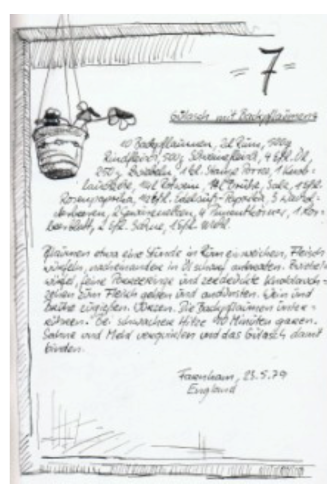 = 7 =
Gulasch mit Backpflaumen
10 Backpflaumen, 2 cl Rum, 500 g
Rindfleisch, 500 g Schweinefleisch, 4 Eßl. Öl,
250 g Zwiebeln, 1 Stange Porree, 1 Knob-
lauchzehe, Rotwein, Salz, 1 Eßl.
Rosenpaprika, Paprika, 5 Wachol-
derbeeren, 2 Gewürznelken, 4 Pimentkörner, 1 Lor-
beerblatt, 2 Eßl. Sahne, 1 Eßl. Mehl.
Pflaumen etwa eine Stunde in Rum einweichen, Fleisch
würfeln, nacheinander in Öl scharf anbraten. Zwiebel-
würfel, feine Porreeringe und zerdrückte Knoblauch-
zehen zum Fleisch geben und andünsten. Wein und
Brühe zugießen. Würzen. Die Backpflaumen unter-
rühren. Bei schwacher Hitze 90 Minuten garen.
Sahne und Mehl verquirlen und das Gulasch damit
binden.
Farnham, 23.5.79
England